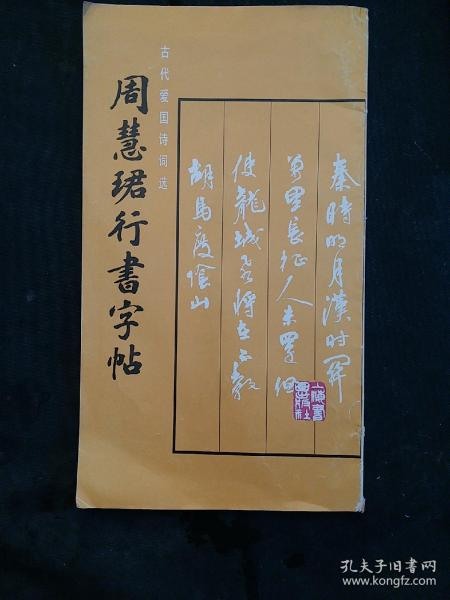 古代爱国诗词选
周慧珺行書字帖
秦時明月漢时関
萬里長征人未還但
使龍城飛将在不教
胡馬度陰山
孔夫子旧书网
www.kongfz.com